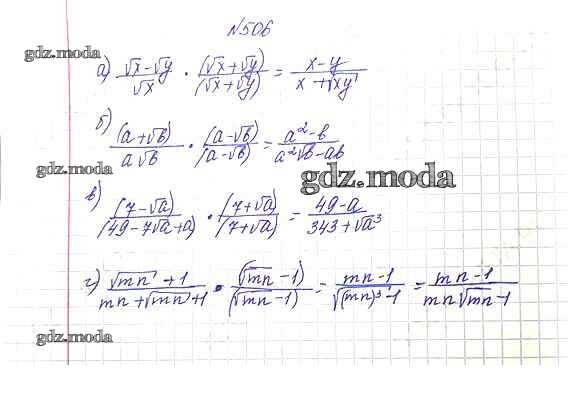 №506
gdz.moda
а) (√x-√y)/√x · (√x+√y)/(√x+√y) = (x-y)/(x+√xy)
б) (a+√b)/(a√b) · (a-√b)/(a-√b) = (a²-b)/(a²√b-ab)
gdz.moda
gdz.moda
в) (7-√a)/(49-7√a+a) · (7+√a)/(7+√a) = (49-a)/(343+√a³)
г) (√mn+1)/(mn+√mn+1) · (√mn-1)/(√mn-1) = (mn-1)/(√(mn)³-1) = (mn-1)/(mn√mn-1)
gdz.moda